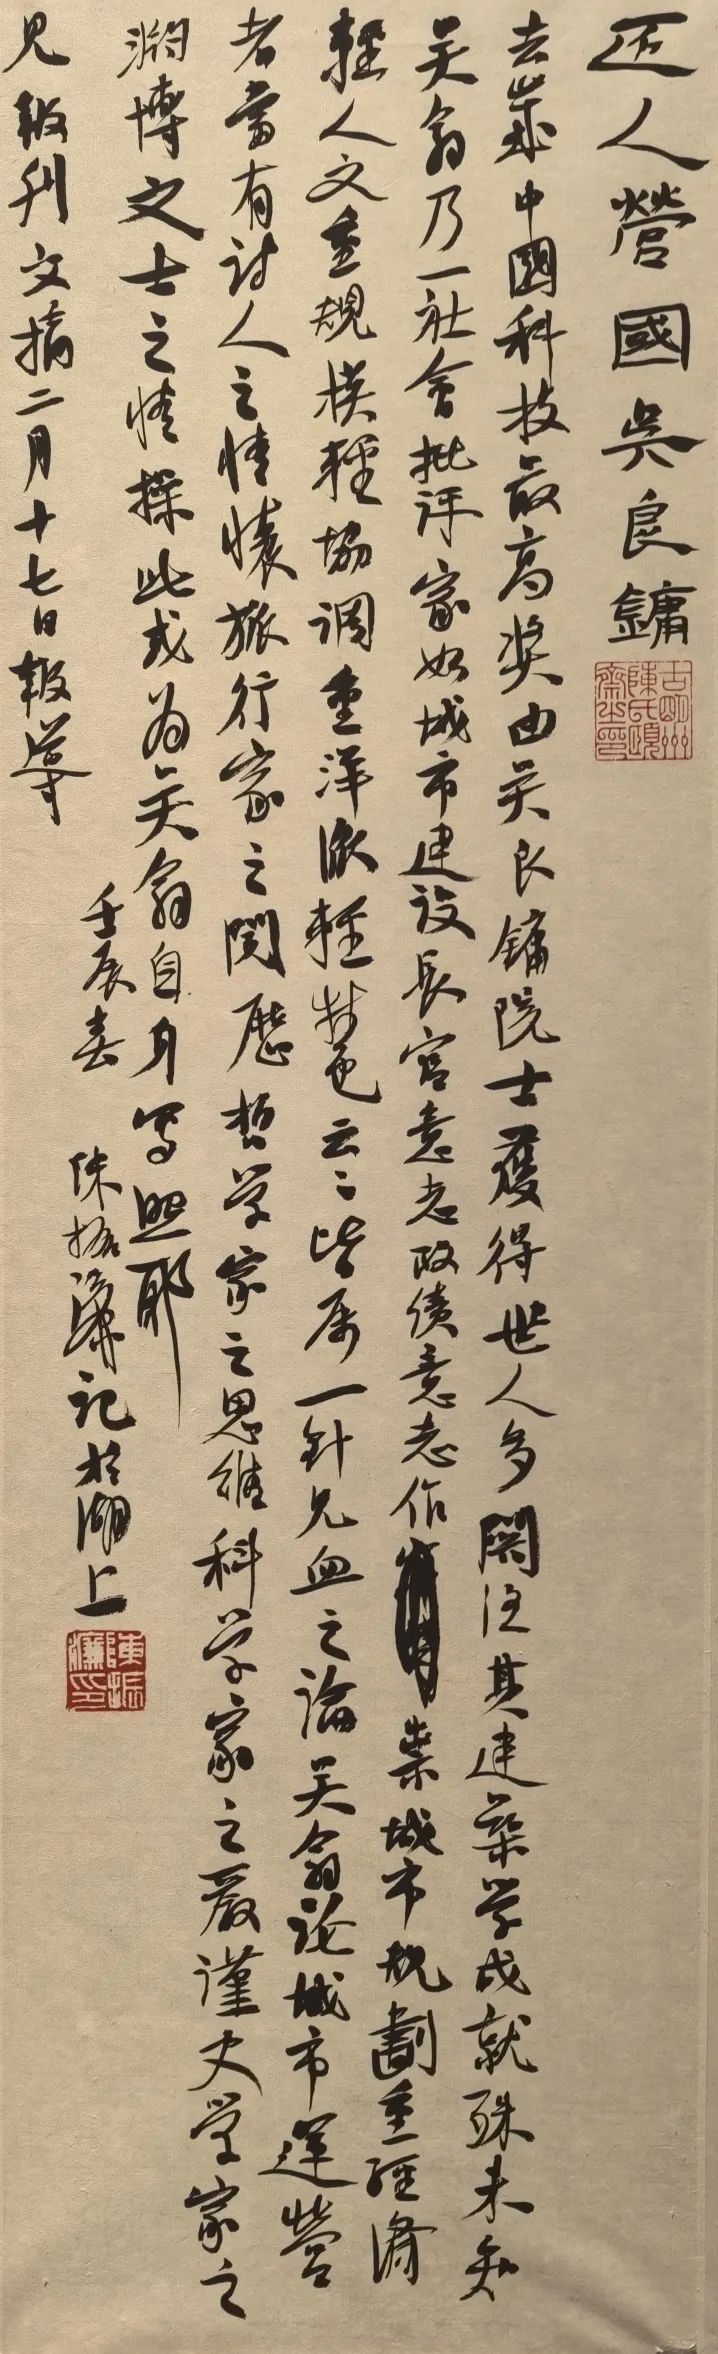 匠人營國吳良鏞
去歲中國科技最高獎由吴良鏞院士獲得世人多関注其建築学成就殊未知
吴翁乃一社會批评家如城市建设長官意志政绩意志作祟城市规劃重经济
輕人文重规模輕協調重洋派輕特色云云皆屬一针见血之論吴翁论城市運營
者當有诗人之情懷旅行家之閱歷哲学家之思维科学家之嚴謹史学家之
渊博文士之情操此或为吴翁自身写照耶
见報刊文摘二月十七日報導
壬辰春
陳振濂記於湖上
陳振濂印